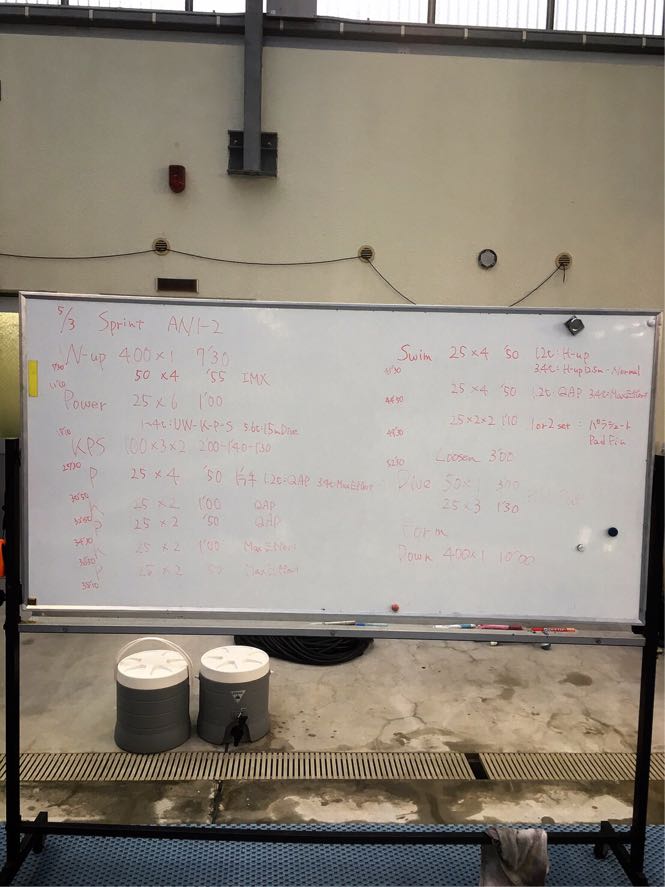 5/3 Sprint AN1-2
W-up 400×1 7'30
7'30
50×4 '55 IMX
11'10
Power 25×6 1'00
1~4t:UW-K-P-S 5.6t:15mDive
KPS 100×3×2 2'00-1'40-1'30
P 25×4 '50 1.2t:QAP 3.4t:Max Effort
K 25×2 1'00 QAP
P 25×2 '50 QAP
K 25×2 1'00 Max Effort
P 25×2 '50 Max Effort
Swim 25×4 '50 1.2t:H-up
3.4t:H-up12.5m-Normal
25×4 '50 1.2t:QAP 3.4t:Max Effort
25×2×2 1'10 1or2set:パラシュート
Pad Fin
Loosen 3'00
Dive 50×1 3'00
25×3 1'30
Form
Down 400×1 10'00